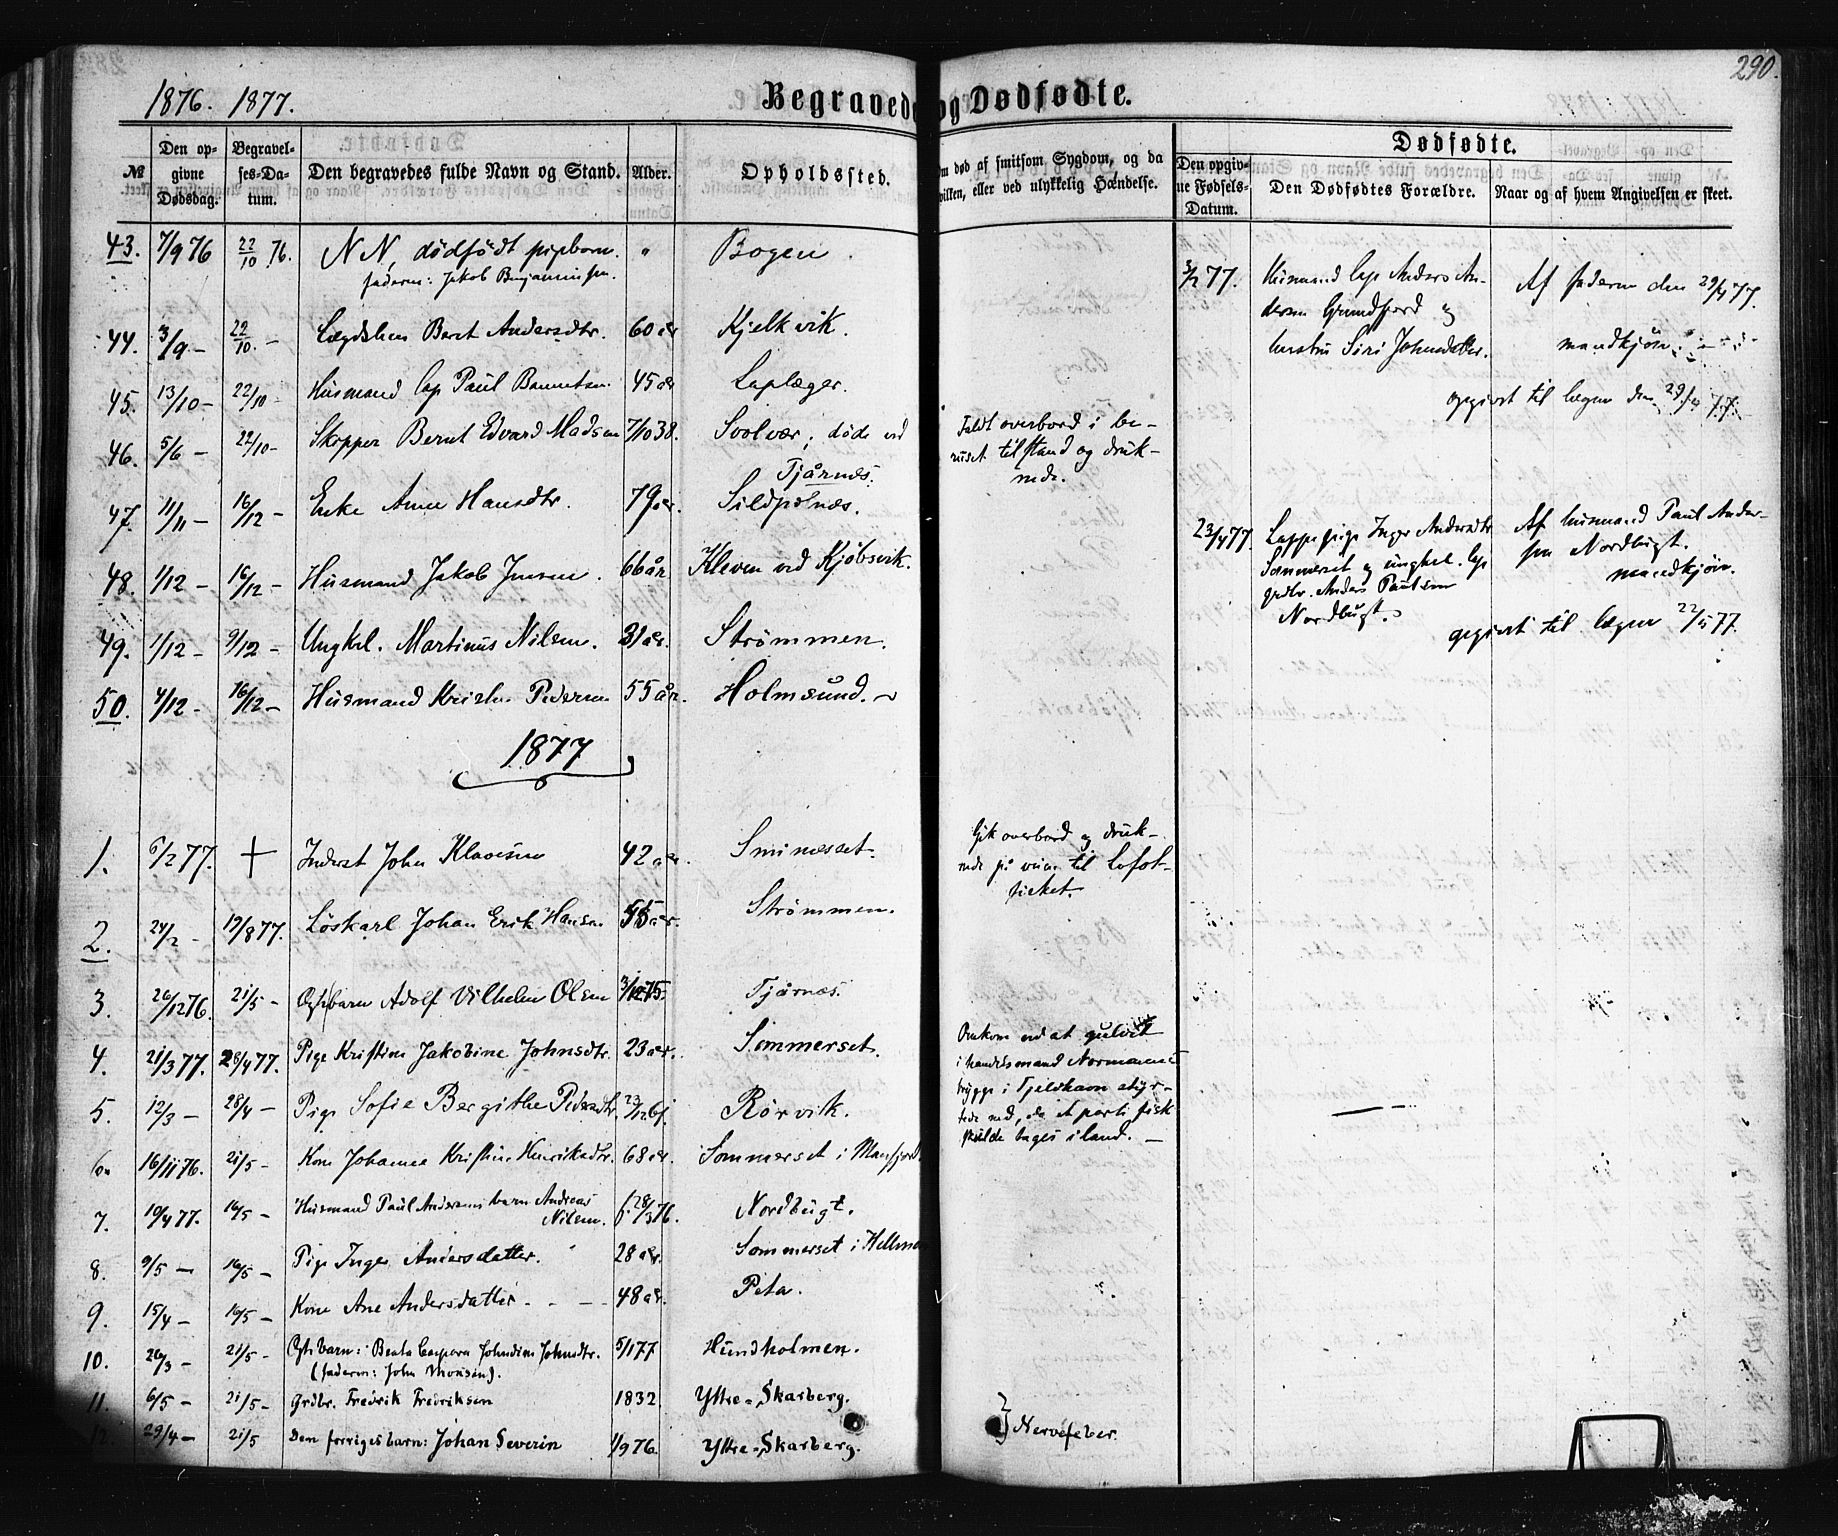 1876. 1877.
Begravede og Dødfødte.
290.
№
Den opgivne Dødsdag.
Begravelses-Datum.
Den begravedes fulde Navn og Stand.
Alder.
Opholdssted.
Om død af smitsom Sygdom, og da
hvilken, eller ved ulykkelig Hændelse.
Dødfødte.
Den opgivne Fødsels-Datum.
Den Dødfødtes Forældre.
Naar og af hvem Angivelsen er skeet.
43. 7/9 76 22/10 76. NN, dødfödt pigebarn. " Bogen.
faderen: Jakob Benjaminsen.
44. 3/9 - 22/10 - Lægdslem Beret Andersdtr. 60 år Kjelkvik.
45. 13/10 - 22/10 - Husmand lap Paul 45 år Laplæger.
46. 5/6 - 22/10 - Skipper Bernt Edvard Madsen 7/10 38. Svolvær; døde ved
Tjårnæs.
Faldt overbord i be-
ruset tilstand og druk-
nede.
47. 11/11 - 16/12 - Enke Anne Hansdtr. 79 år. Sildpolnæs.
48. 1/12 - 16/12 - Husmand Jakob Jensen. 66 år Kleven ved Kjöbsvik.
49. 1/12 - 9/12 - Ungkl. Martinus Nilsen. 31 år. Strömmen.
50. 4/12 - 16/12 - Husmand Kristen Pedersen 55 år. Holmsund.
1877
1. 6/2 77. + Inderst John Klaussen 42 år. Sminæsset.
Gik overbord og druk-
nede på veien til Lofot-
fisket.
2. 24/2 - 19/8 77. Löskarl Johan Erik Hansen 55 år. Strömmen.
3. 26/12 76. 21/5 - barn Adolf Vilhelm Olsen 3/12 75 Tjårnæs.
4. 21/3 77. 28/4 77. Pige Kristine Jakobine Johnsdtr. 23 år. Sommerset.
Omkom ved at gulvet
i handelsmand Normanns
brygge i Tjeldhavn styr-
tede ned, da et parti fisk
skulde tages i land. -
5. 12/3 - 28/4 - Pige Sofie Bergithe Pedersdtr. 23/12 61. Rörvik.
6. 16/11 76. 21/5 - Kone Johanna Kristine Henriksdtr. 68 år. Sommerset i Mansfjord
7. 10/4 77. 16/5 - Husmand Paul Andersens barn Andreas
Nilsen. f. 28/3 76. Nordbugt.
8. 9/5 - 16/5 - Pige Inger Andersdatter. 28 år. Sommerset i Hellmo
9. 15/4 - 16/5 - Kone Ane Andersdatter - - - 48 år. Peta.
10. 26/3 - 21/5 - barn: Beata Johndine Johnsdtr. 5/1 77 Hundholmen.
(faderen: John Monsen).
11. 6/5 - 21/5 - Grdbr. Fredrik Fredriksen 1832 Yttre-Skarberg.
12. 29/4 - 21/5 Den forriges barn: Johan Severin 1/9 76. Yttre-Skarberg.
} Nervefeber.
3/2 77. Husmand lap Anders An-
dersen Grundfjord og
hustru Siri Johnsdatter.
Af faderen den 29/4 77.
mandkjön.
opgivet til lægen den 29/4 77.
23/4 77. Lappepige Inger Andersdtr
Sommerset og ungkel. lap
grdbr. Anders Paulsen
Nordbugt.
Af husmand Paul Ander-
sen Nordbugt.
mandkjön.
opgivet til lægen 22/5 77.